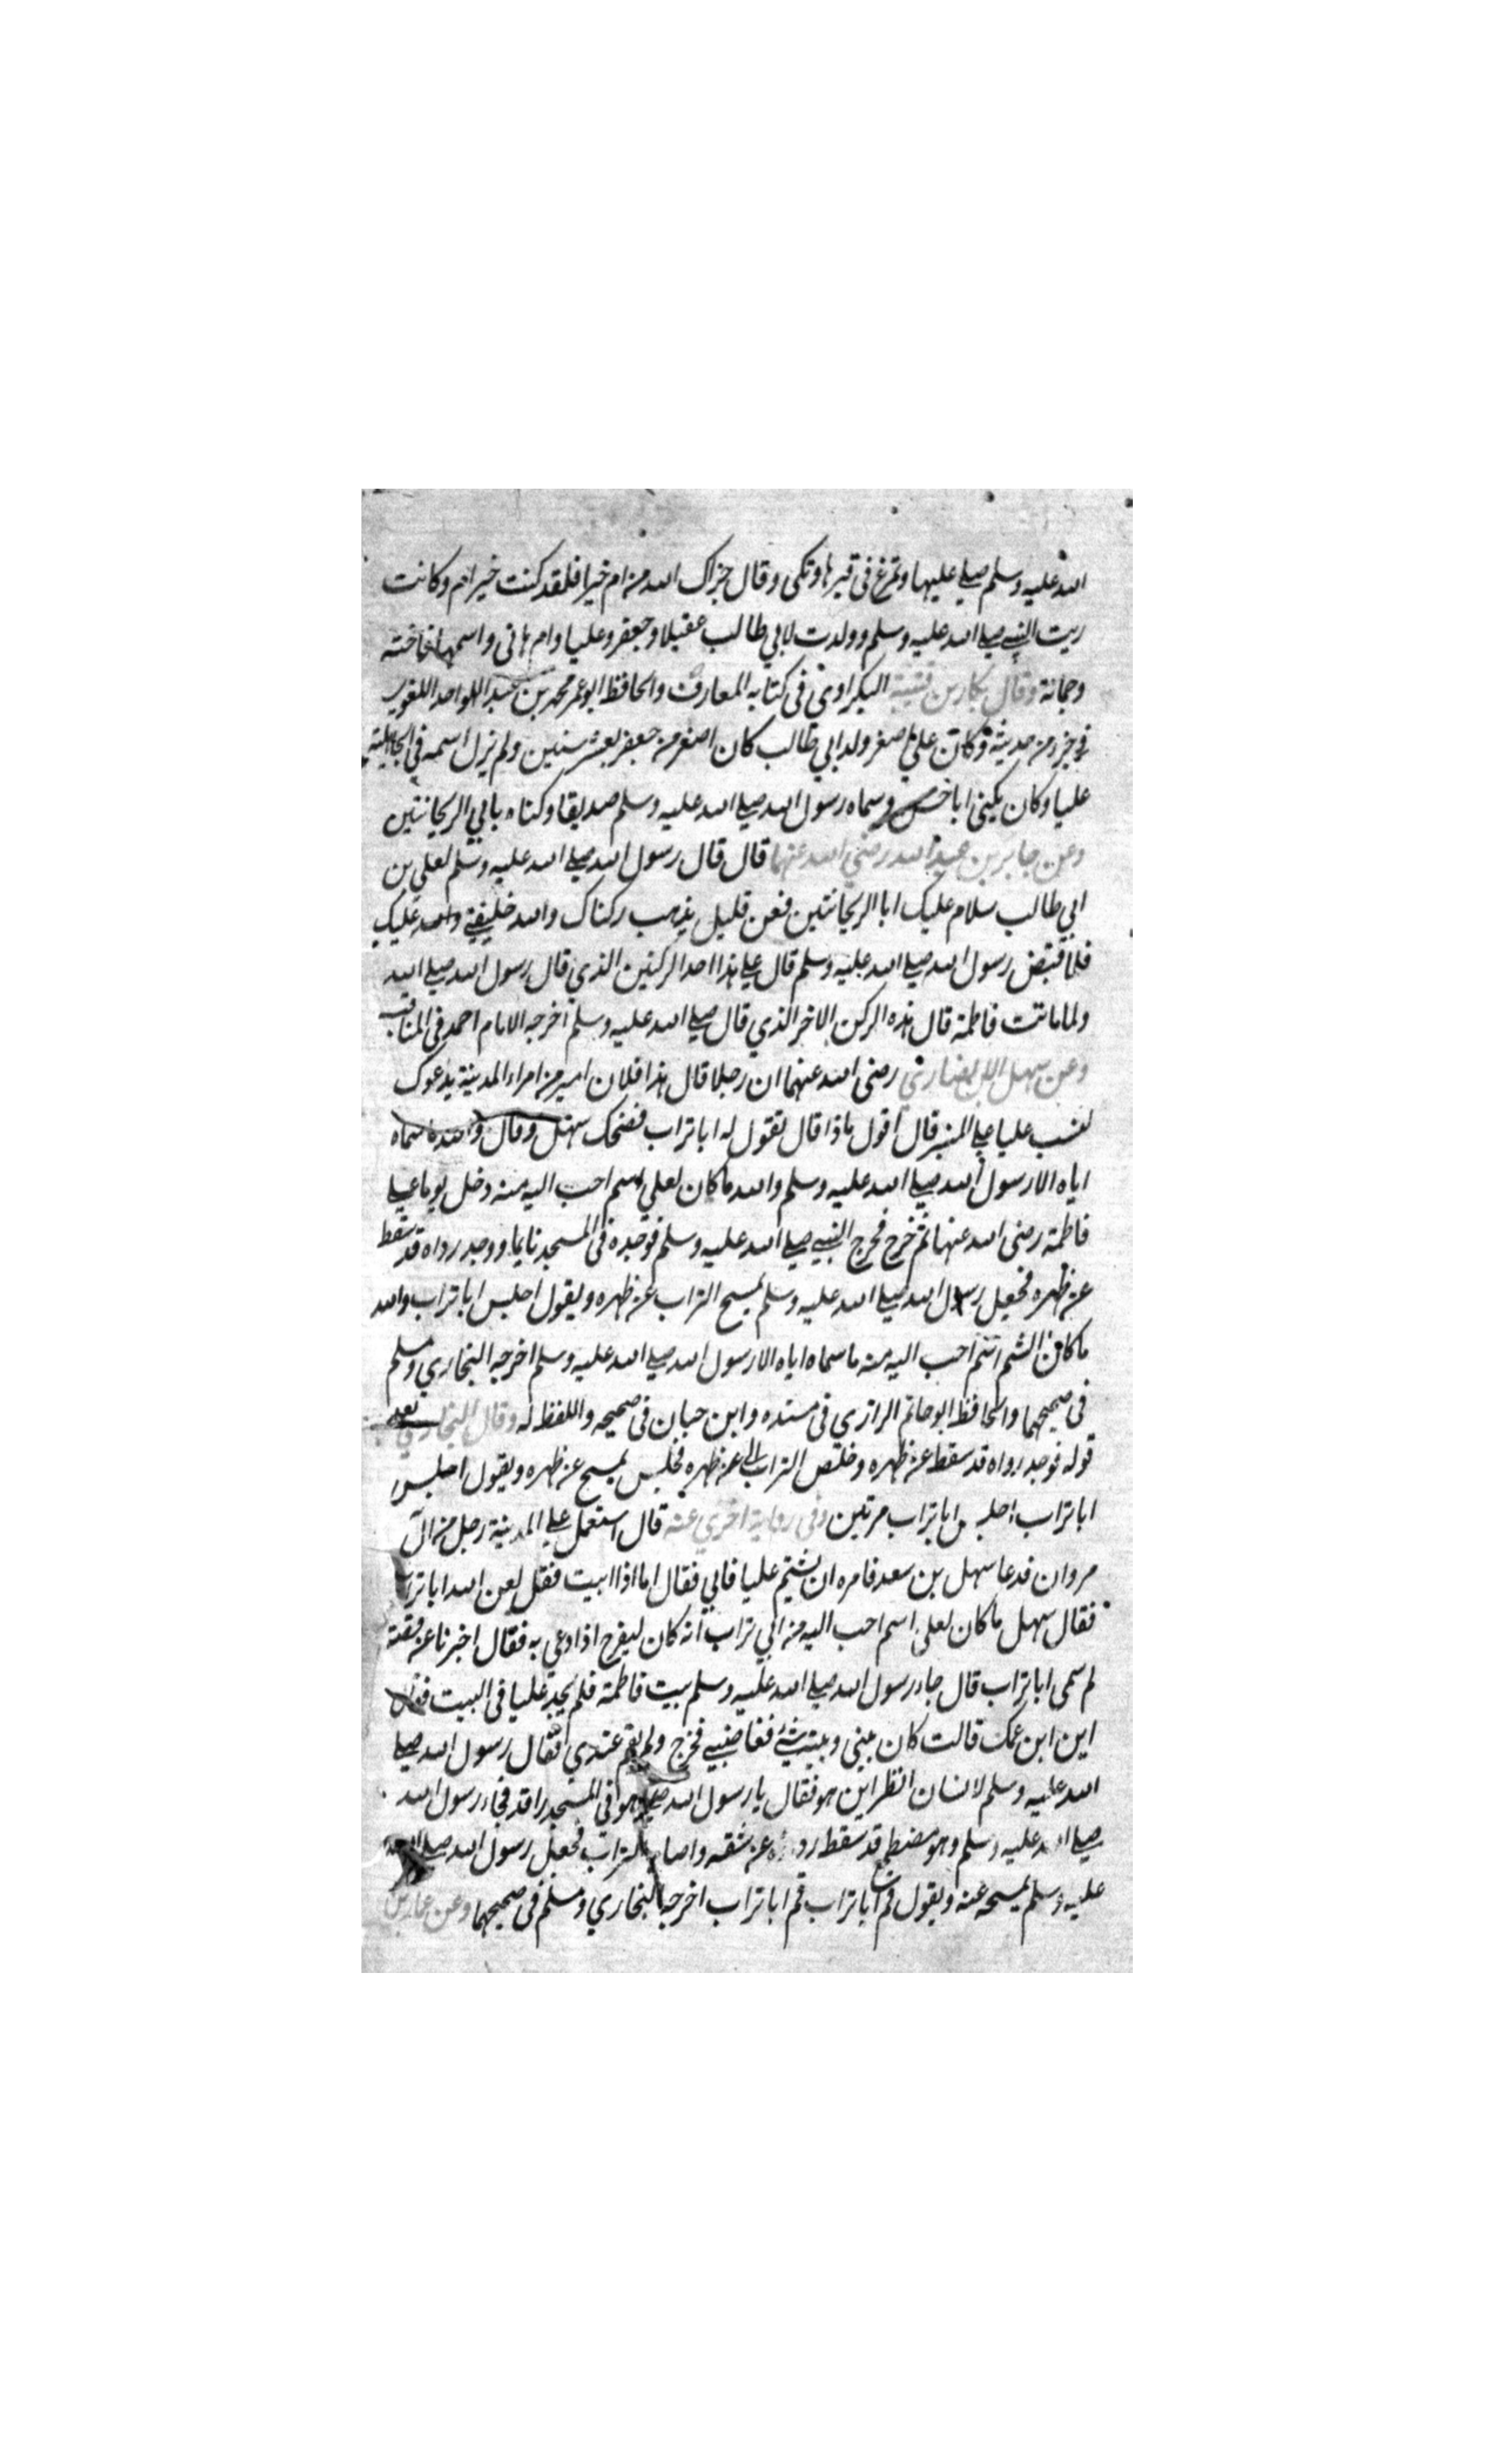 الله عليه وسلم صلى عليها وتمرغ في قبرها وبكى وقال جزاك الله من ام خيرا فلقد كنت خير ام وكانت
ربت النبي صلى الله عليه وسلم وولدت لابي طالب عقيلا وجعفر وعليا وام هاني واسمها فاخته
وجمانة وقال بكار بن قتيبة البكراوي في كتابه المعارف والحافظ ابو عمر محمد بن عبد الواحد اللغوي
في جزء من حديثه وكان علي اصغر ولد ابي طالب كان اصغر من جعفر بعشر سنين ولم يزل اسمه في الجاهلية
عليا وكان يكنى ابا حسن وسماه رسول الله صلى الله عليه وسلم صديقا وكناه بابي الريحانتين
وعن جابر بن عبد الله رضي الله عنهما قال قال رسول الله صلى الله عليه وسلم لعلي بن
ابي طالب سلام عليك ابا الريحانتين فعن قليل يذهب ركناك والله خليفتي عليك
فلما قبض رسول الله صلى الله عليه وسلم قال علي هذا احد الركنين الذي قال رسول الله صلى الله
ولما ماتت فاطمة قال هذه الركن الاخر الذي قال صلى الله عليه وسلم اخرجه الامام احمد في المناقب
وعن سهل الانصاري رضى الله عنهما ان رجلا قال هذا فلان امير من امراء المدينة يدعوك
لتسب عليا على المنبر قال اقول ماذا قال تقول له ابا تراب فضحك سهل وقال سماه
اياه الا رسول الله صلى الله عليه وسلم والله ما كان لعلي اسم احب اليه منه دخل يوما على
فاطمة رضى الله عنها ثم خرج فخرج النبي صلى الله عليه وسلم فوجده في المسجد نايما ووجد رداه قد سقط
عن ظهره فجعل رسول الله صلى الله عليه وسلم يمسح التراب عن ظهره ويقول اجلس ابا تراب والله
ما كان احب اليه منه ما سماه اياه الا رسول الله صلى الله عليه وسلم اخرجه البخاري ومسلم
في صحيحهما والحافظ ابو حاتم الرازي في مسنده وابن حبان في صحيحه واللفظ له وقال البخاري بعد
قوله فوجد رداه قد سقط عن ظهره وخلص التراب الى ظهره فجلس يمسح عن ظهره ويقول اجلس
ابا تراب اجلس ابا تراب مرتين وفي رواية اخري عنه قال استعمل على المدينة رجل من ال
مروان فدعا سهل بن سعد فامره ان يشتم عليا فابي فقال اما اذا ابيت فقل لعن الله ابا تراب
فقال سهل ما كان لعلي اسم احب اليه من ابي تراب انه كان ليفرح اذا دعي به فقال اخبرنا عن قصته
لم سمى ابا تراب قال جاء رسول الله صلى الله عليه وسلم بيت فاطمة فلم يجد عليا في البيت فقال
اين ابن عمك قالت كان بيني وبينه شئ فغاضبني فخرج ولم يقم عندي فقال رسول الله صلى
الله عليه وسلم لانسان انظر اين هو فقال يا رسول الله هو في المسجد راقد فجاء رسول الله
صلى الله عليه وسلم وهو مضطجع قد سقط رداه عن شقه واصابه التراب فجعل رسول الله صلى الله
عليه وسلم يمسحه عنه ويقول قم ابا تراب قم ابا تراب اخرجه البخاري ومسلم في صحيحهما وعن عمار بن